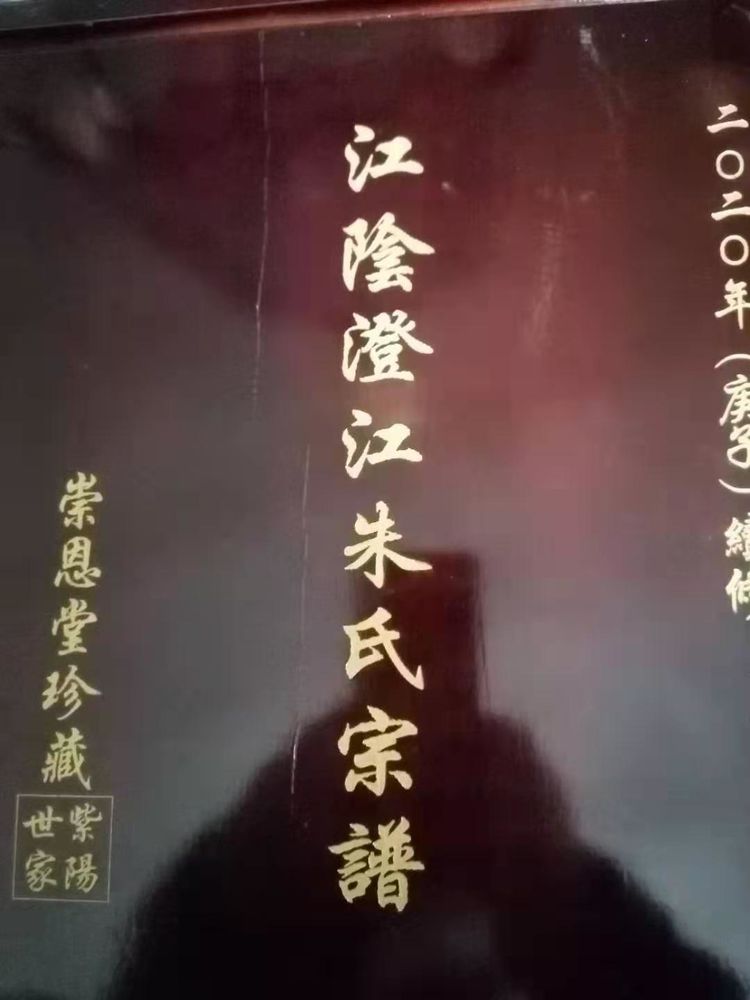 二〇二〇年（庚子）續修
江陰澄江朱氏宗譜
崇恩堂珍藏
紫陽
世家